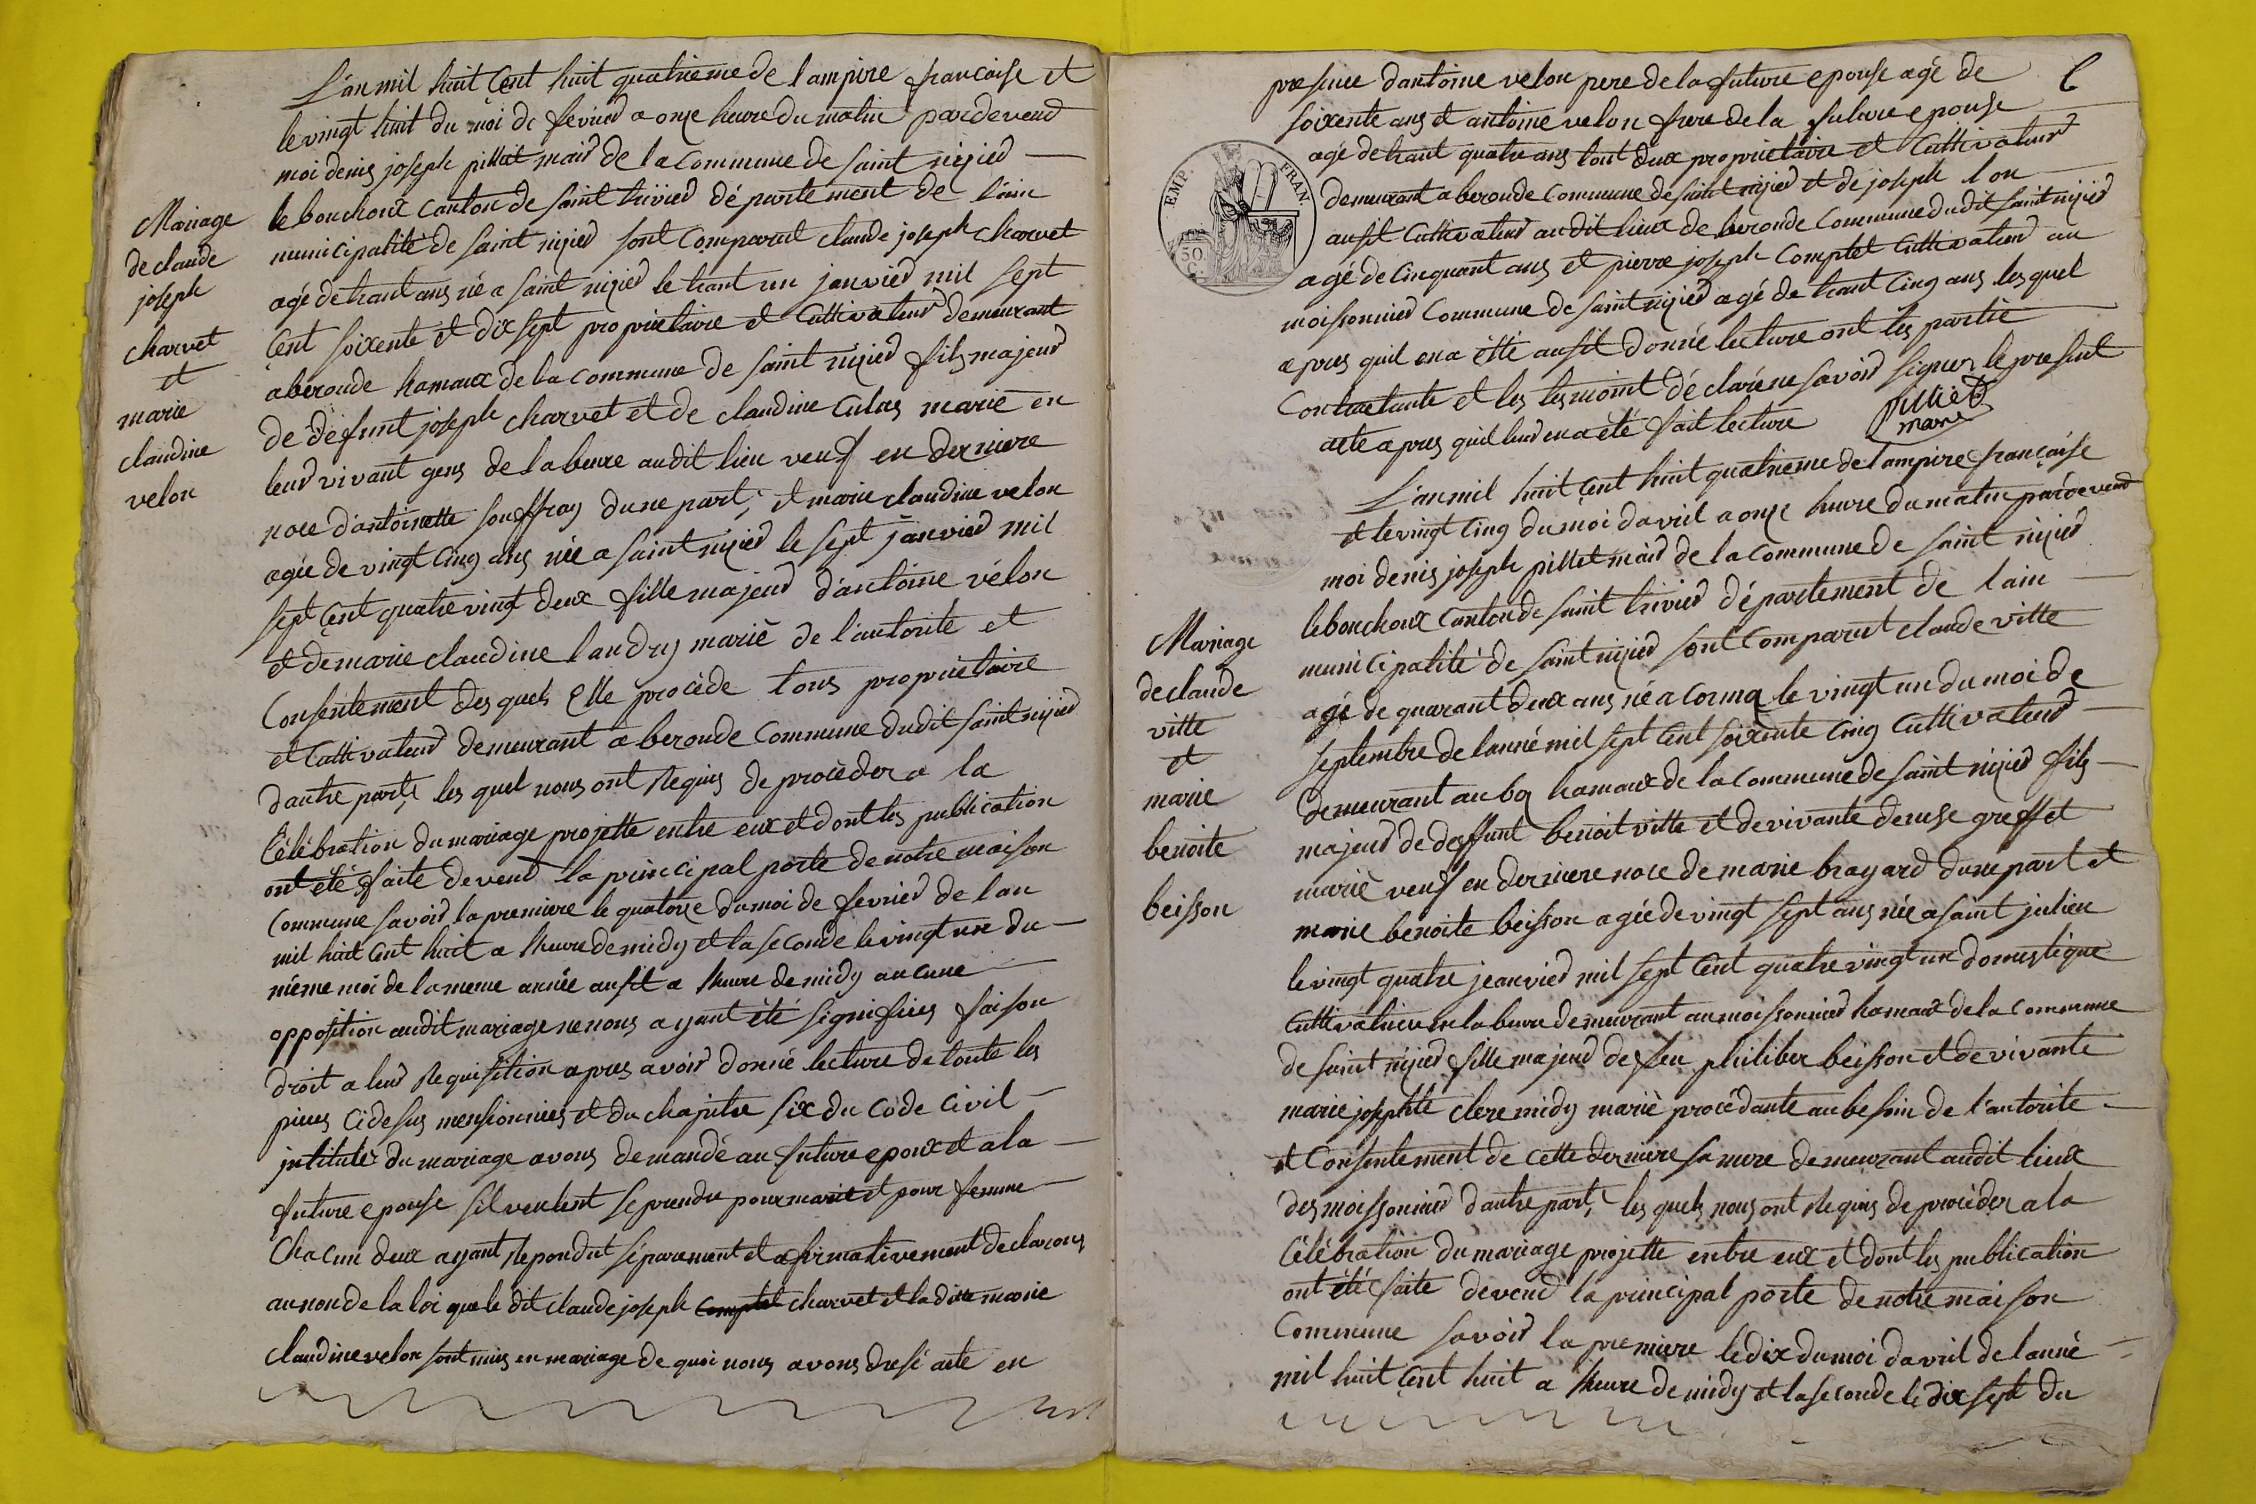 L'an mil huit Cent huit quatrieme de lampire francaise et
le vingt huit du moi de fevrier a onze heure du matin par deveud
moi denis joseph pillet mair de la Commune de Saint nizier
le bouchoux canton de Saint trivier département de l'ain
municipalité de Saint nizier sont Comparut claude joseph charvet
agé de trant ans né a Saint nizier le trant un janvier mil sept
Cent soixente et dix sept proprietaire et Cultivateur demeurant
a beroude hamaux de la commune de Saint nizier fils majeur
de défunt joseph charvet et de claudine Culas marié en
leur vivant gens de labeure audit lieu veuf en derniere
noce d'antoinette souffray dune part, et marie claudine velon
agée de vingt Cinq ans née a Saint nizier le sept janvier mil
sept Cent quatre vingt deux fille majeur d'antoine vélon
et de marie claudine landry marié de l'autorité et
Consentement des quels Elle procède tous proprietaire
et Cultivateur demeurant a beroude Commune dudit Saint nizier
dautre part, les quel nous ont Requis de procèder a la
Célébration du mariage projette entre eux et dont les publication
ont été faite deveud la principal porte de notre maison
Commune savoir la premiere le quatorze du moi de fevrier de lan
mil huit Cent huit a lheure de midy et la seconde le vingt un du
même moi de la meme année ausit a lheure de midy aucune
opposition audit mariage ne nous ayant été signifiées faison
droit a leur Requisition apres avoir donné lecture de toute les
pieces Cidesus mensionnies et du chapitre six du Code Civil
intitulé du mariage avons demandé au future epoux et a la
future epouse sil veulent se prendre pour marit et pour femme
Chacun deux ayant Repondut séparement et afirmativement declarons
au non de la loi que le dit claude joseph Comptet charvet et la ditte marie
claudine velon sont unis en mariage de quoi nous avons dresé acte en
Mariage
de claude
joseph
charvet
et
marie
claudine
velon
presence dantoine velon pere de la future epouse agé de
soixente ans et antoine velon frere de la future epouse
agé de trant quatre ans tout deux proprietaire et Cultivateur
demeurant a beroude Commune de Saint nizier et de joseph lon
ausit Cultivateur audit lieux de beroude Commune dudit Saint nizier
agé de Cinquant ans et pierre joseph Comptet Cultivateur au
moissonnier Commune de Saint nizier agé de trant Cinq ans les quel
apres quil en a étté ausit donné lecture ont les partie
Contractante et les tesmoint déclaré ne savoir signer le present
acte apres quil leur en a été fait lecture
pillet
maire
L'an mil huit Cent huit quatrieme de lampire française
et le vingt Cinq du moi davril a onze heure du matin par deveud
moi denis joseph pillet mair de la Commune de Saint nizier
le bouchoux canton de Saint trivier département de lain
municipalité de Saint nizier sont Comparut claude vitte
agé de quarant deux ans né a Cormoz le vingt un du moi de
septembre de lanné mil sept Cent soixente Cinq Cultivateur
demeurant au boz hamaux de la Commune de Saint nizier fils
majeur de deffunt benoit vitte et de vivante denise greffet
marié veuf en derniere noce de marie brayard dune part et
marie benoite beisson agée de vingt sept ans née a Saint julien
le vingt quatre jeanvier mil sept Cent quatre vingt un domestique
Cultivatrice en labeure demeurant au moissonnier hamaux de la Commune
de Saint nizier fille majeur de feu philiber beisson et de vivante
marie josephte clere midy marié procédante au besoin de l'autorité
et Consentement de cette derniere sa mere demeurant audit lieux
des moissonnier dautre part, les quels nous ont Requis de procèder a la
Célébration du mariage projette entre eux et dont les publication
ont été faite deveud la principal porte de notre maison
Commune savoir la premiere le dix du moi davril de lanné
mil huit Cent huit a lheure de midy et la seconde le dix sept du
Mariage
de claude
vitte
et
marie
benoite
beisson
EMP. FRAN
50
C.